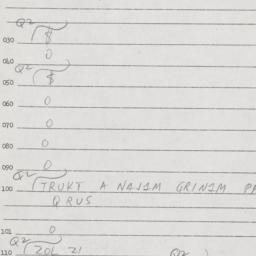 Q2
030 $
0
040
Q2
050 $
060 0
070 0
080 0
090 0
Q2
100 TRUKT A NAJIM GRINIM PA
Q RUS
101 0
Q2
110 20L 21